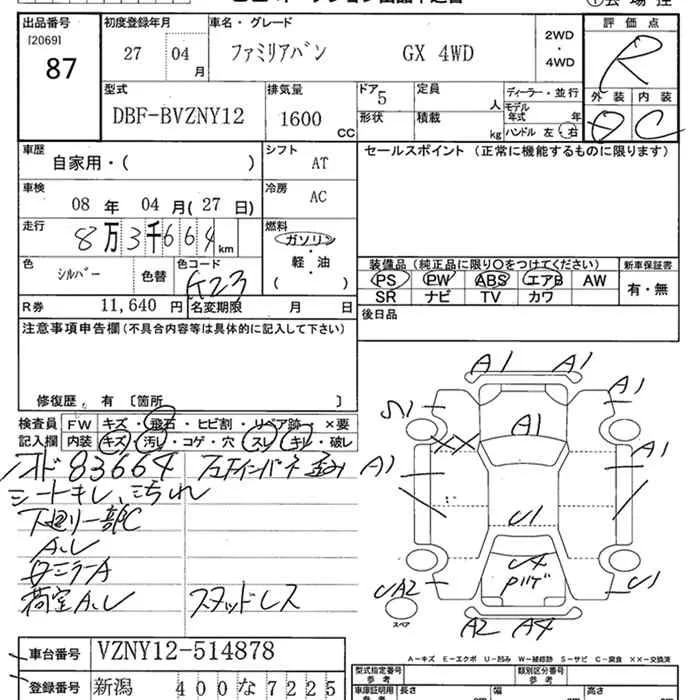 出品番号 初度登録年月 車名・グレード 評価点
[2069]
87 27 04 月 ファミリアバン GX 4WD 2WD・4WD R
型式 排気量 ドア 定員 ディーラー・並行 外装 内装
DBF-BVZNY12 1600 CC 5 人 モデル年式 年 C
形状 積載 kg ハンドル 左・右
車歴 シフト セールスポイント (正常に機能するものに限ります)
自家用・( ) AT
車検 冷房
08年 04月(27日) AC
走行 燃料
8万3千664km ガソリン・軽・油
( )
色 色替 色コード 装備品(純正品に限り○をつけてください) 新車保証書
シルバー K23 PS PW ABS エアB AW 有・無
SR ナビ TV カワ
R券 11,640 円 名変期限 月 日 後日品
注意事項申告欄(不具合内容等は具体的に記入して下さい)
修復歴 有 〔箇所 〕
検査員 FW キズ・飛石・ヒビ割・リペア跡・×要
記入欄 内装 キズ・汚レ・コゲ・穴・スレ・キレ・破レ
83664
シートキレ、汚れ
下廻り一部C
A.L
荷室A.L スタッドレス
A1 A1
A1
A1
A1 A1
XX
U1
U4
U1
UA2
スペア
A2 A4
A-キズ E-エクボ U-凹み W-補修跡 S-サビ C-腐食 XX-交換済
車台番号 VZNY12-514878
登録番号 新潟 400な7225
型式指定番号 参考 類別区分番号 参考
車庫証明用 長さ 幅 高さ